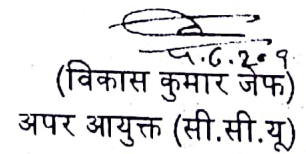 (विकास कुमार जेफ)
अपर आयुक्त (सी.सी.यू)